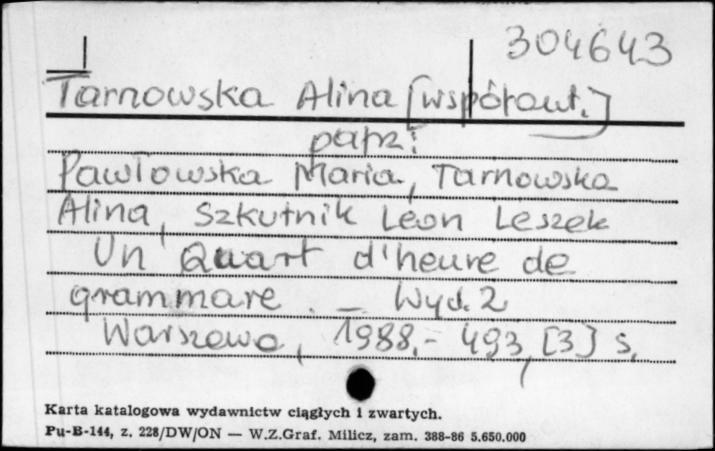 304643
Tarnowska Alina [współaut.]
patrz:
Pawłowska Maria, Tarnowska
Alina, Szkutnik Leon Leszek
Un Quart d'heure de
grammare . – Wyd. 2
Warszawa, 1988.- 493, [3] s.
Karta katalogowa wydawnictw ciągłych i zwartych.
Pu-B-144, z. 228/DW/ON — W.Z.Graf. Milicz, zam. 388-86 5.650.000